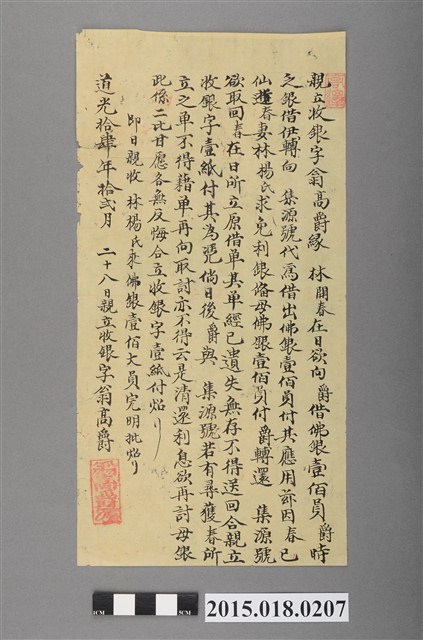 親立收銀字翁高爵緣 林開春在日欲向 爵借佛銀壹佰員 爵時
之銀借伊轉向 集源號代為借出佛銀壹佰員付其應用茲因春已
仙逝春妻林楊氏求免利銀備母佛銀壹佰員付 爵轉還 集源號
欲取回春在日所立原借单其单經已遺失無存不得送回合親立
收銀字壹紙付其為凭倘日後爵與 集源號若有尋獲春所
立之单不得藉单再向取討亦不得云是清還利息欲再討母銀
此係二比甘愿各無反悔合立收銀字壹紙付炤
即日親收 林楊氏來佛銀壹佰大員完明批炤
道光拾肆年拾弍月 二十八日親立收銀字翁高爵
2015.018.0207
1CM
5CM